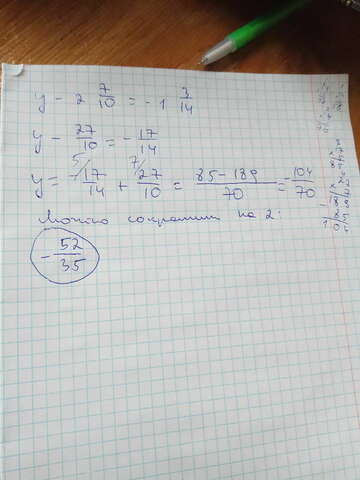 y - 2 7/10 = -1 3/14
y - 27/10 = -17/14
y = -17/14 + 27/10 = 85-189/70 = -104/70
Можно сократить на 2:
-52/35